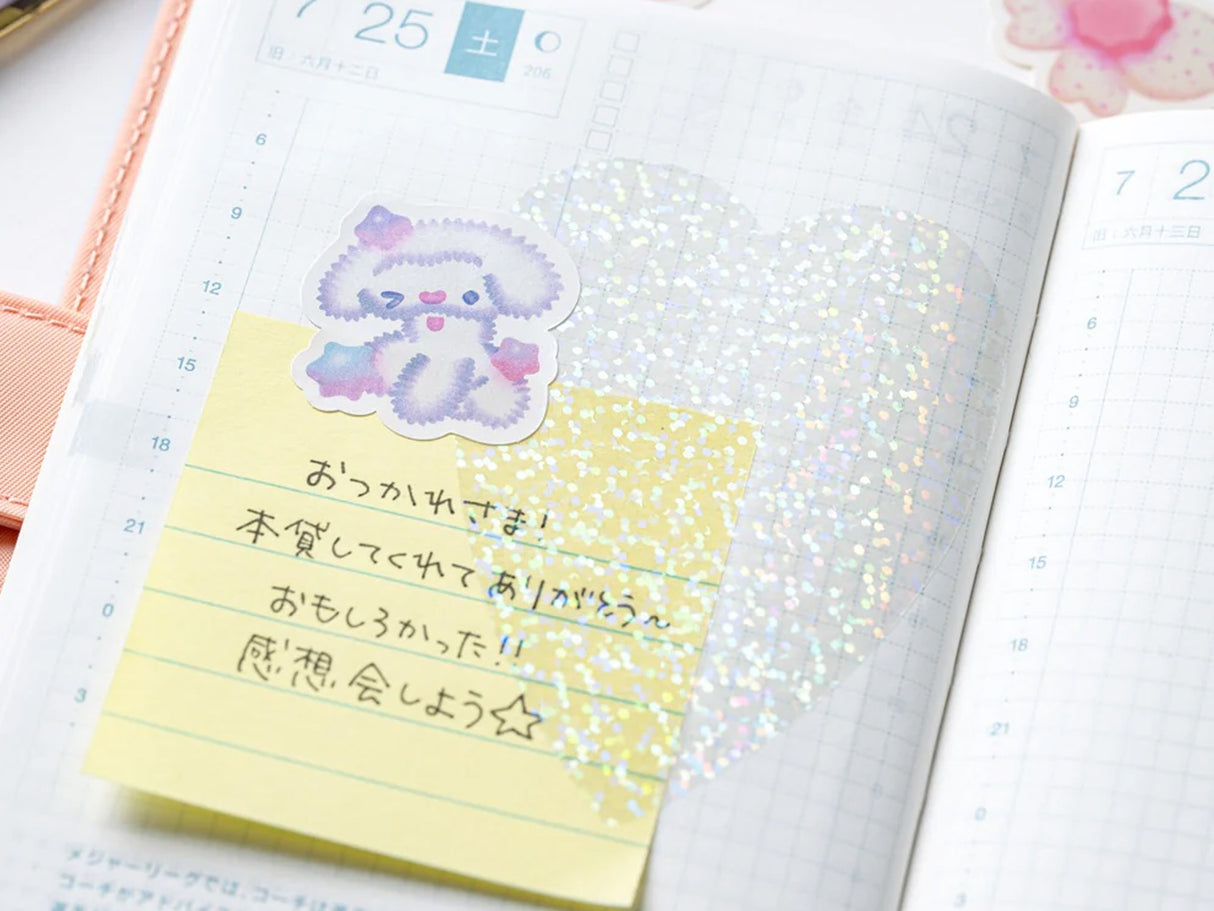 7 25 土
旧：六月十二日
206
6
9
12
15
18
21
0
3
おつかれさま!
本貸してくれてありがとう〜
おもしろかった!!
感想会しよう☆
メジャーリーグでは、コーチは
コーチがアドバイ
7 2
旧：六月十三日
6
9
12
15
18
21
0
3